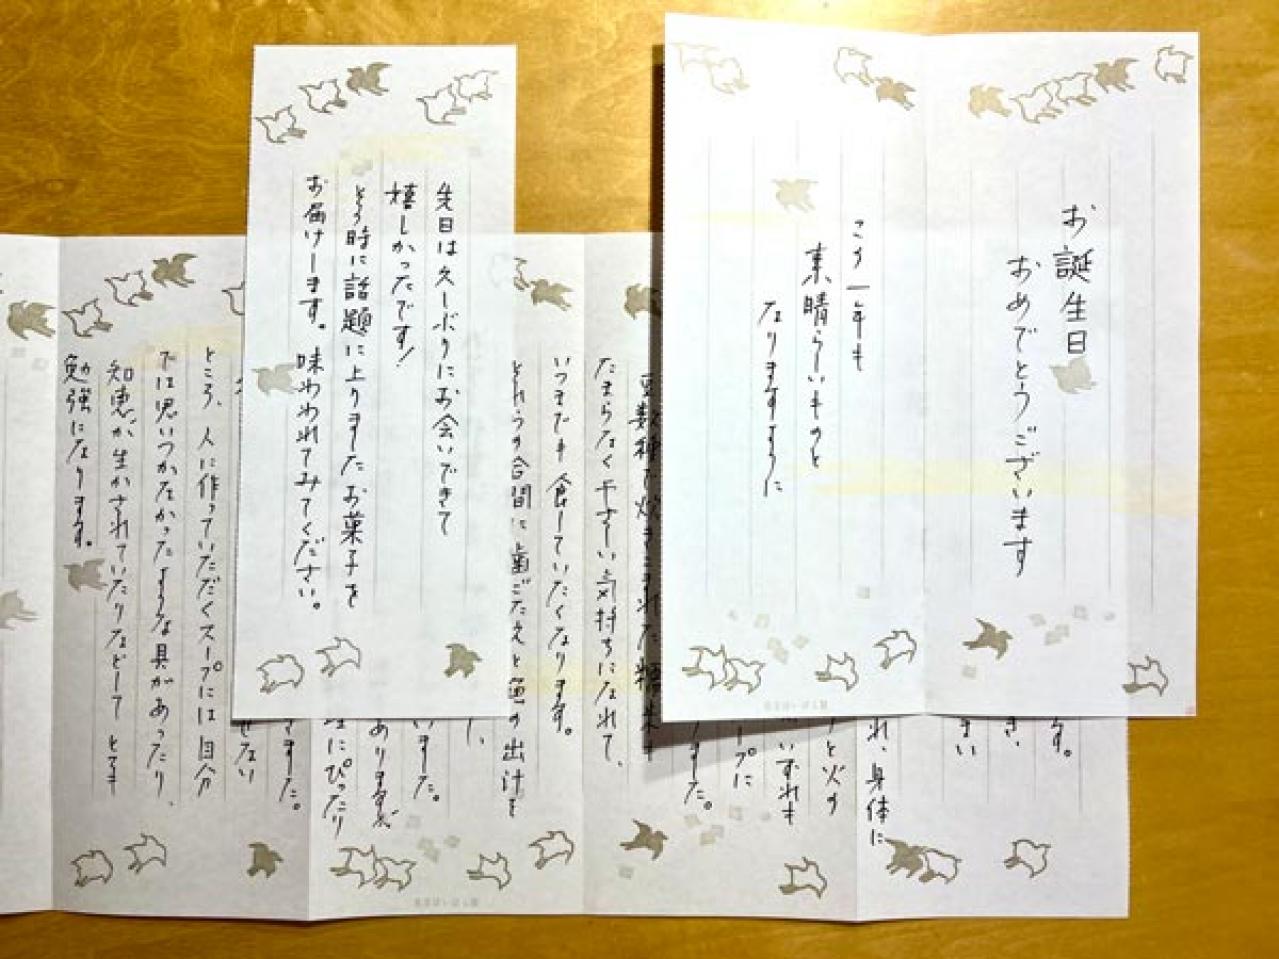 お誕生日
おめでとうございます
この一年も
素晴らしいものと
なりますように
先日は久しぶりにお会いできて
嬉しかったです!
その時に話題に上りましたお菓子を
お届けします。味わわれてみてください。
です。
き、
まい
れ、身体に
と火の
いずれも
ープに
した。
豆数種で炊きこまれた糯米も
たまらなくやさしい気持ちになれて、
いつまでも食していたくなります。
それらの合間に歯ごたえと魚の出汁を
し、
いました。
ありますが
にぴったり
きました。
せない
ところ、人に作っていただくスープには自分
では思いつかなかったような具があったり、
知恵が生かされていたりなどして とても
勉強になります。